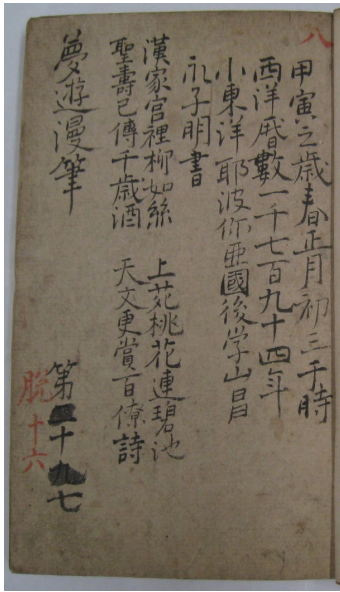 八
甲寅之歳春正月初三于時
西洋暦數一千七百九十四年
小東洋 耶波你亜國後学山昌
永子明書
漢家宮裡柳如絲 上苑桃花連碧池
聖壽已傳千歳酒 天文更賞百僚詩
夢遊漫筆 第二十九七
十六